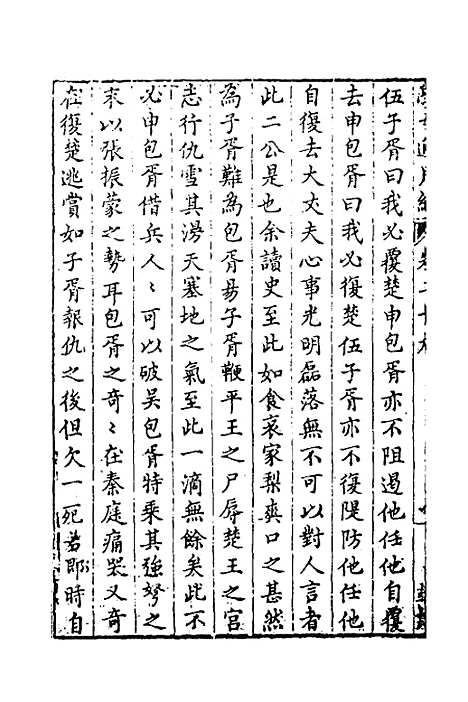 伍子胥曰我必覆楚申包胥亦不阻遏他任他自覆
去申包胥曰我必復楚伍子胥亦不復隄防他任他
自復去大丈夫心事光明磊落無不可以對人言者
此二公是也余讀史至此如食哀家梨爽口之甚然
為子胥難為包胥易子胥鞭平王之尸辱楚王之宮
志行仇雪其滔天塞地之氣至此一滴無餘矣此不
必申包胥借兵人〻可以破吳包胥特乘其強弩之
末以張振蒙之勢耳包胥之奇〻在秦庭痛哭又奇
在復楚逃賞如子胥報仇之後但欠一死若即時自